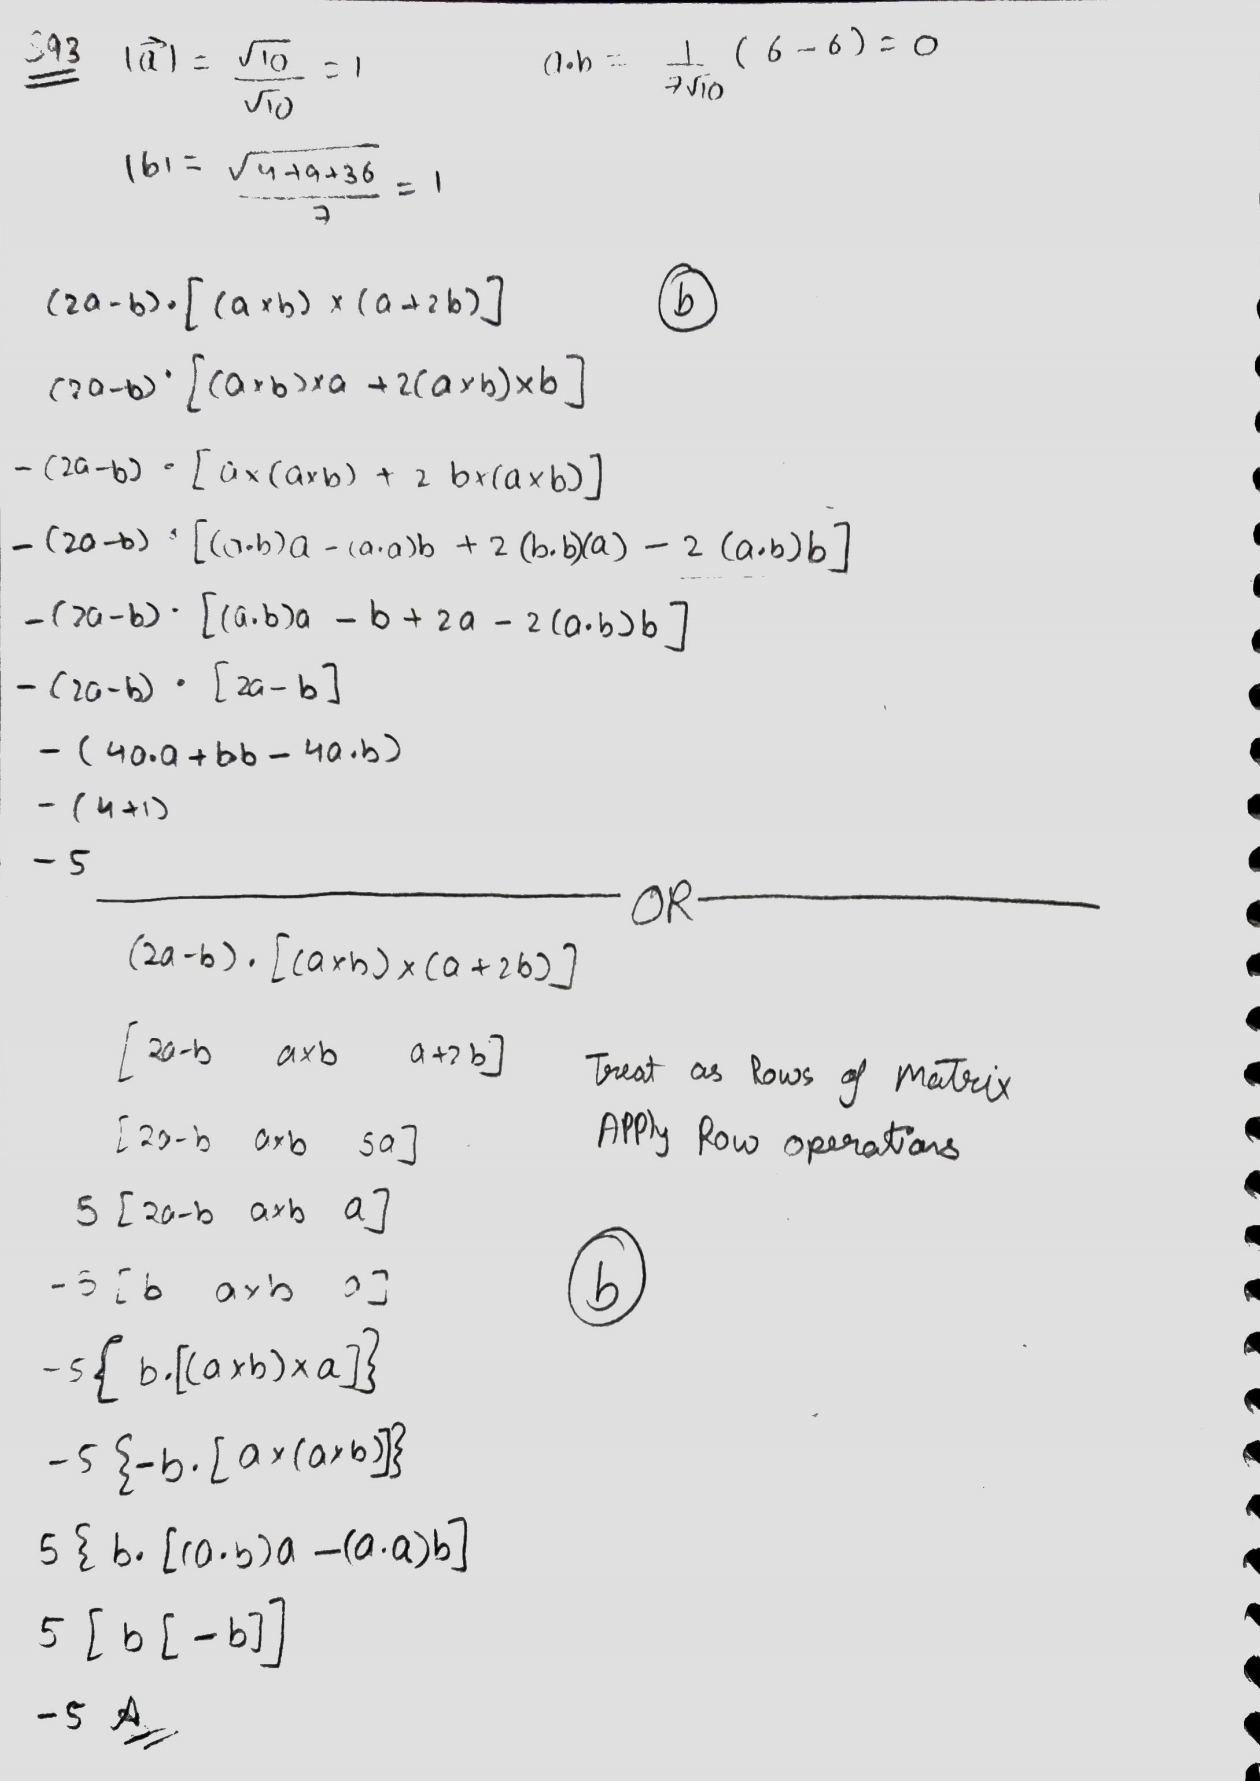 393 |a⃗| = √10/√10 = 1 a.b = 1/7√10 (6-6) = 0
|b| = √4+9+36/7 = 1
(2a-b).[(a×b) × (a+2b)] (b)
(2a-b).[(a×b)×a +2(a×b)×b]
-(2a-b) . [a×(a×b) + 2 b×(a×b)]
-(2a-b) . [(a.b)a - (a.a)b + 2(b.b)(a) - 2 (a.b)b]
-(2a-b). [(a.b)a - b + 2a - 2(a.b)b]
-(2a-b) . [2a-b]
-(4a.a+bb-4a.b)
-(4+1)
-5
OR
(2a-b).[(a×b)×(a+2b)]
[2a-b a×b a+2b] Treat as Rows of Matrix
[2a-b a×b 5a] APPly Row operations
5 [2a-b a×b a]
-5 [b a×b a] (b)
-5{ b.[(a×b)×a]}
-5 {-b.[a×(a×b)]}
5 { b. [(a.b)a -(a.a)b]
5 [b[-b]]
-5 A